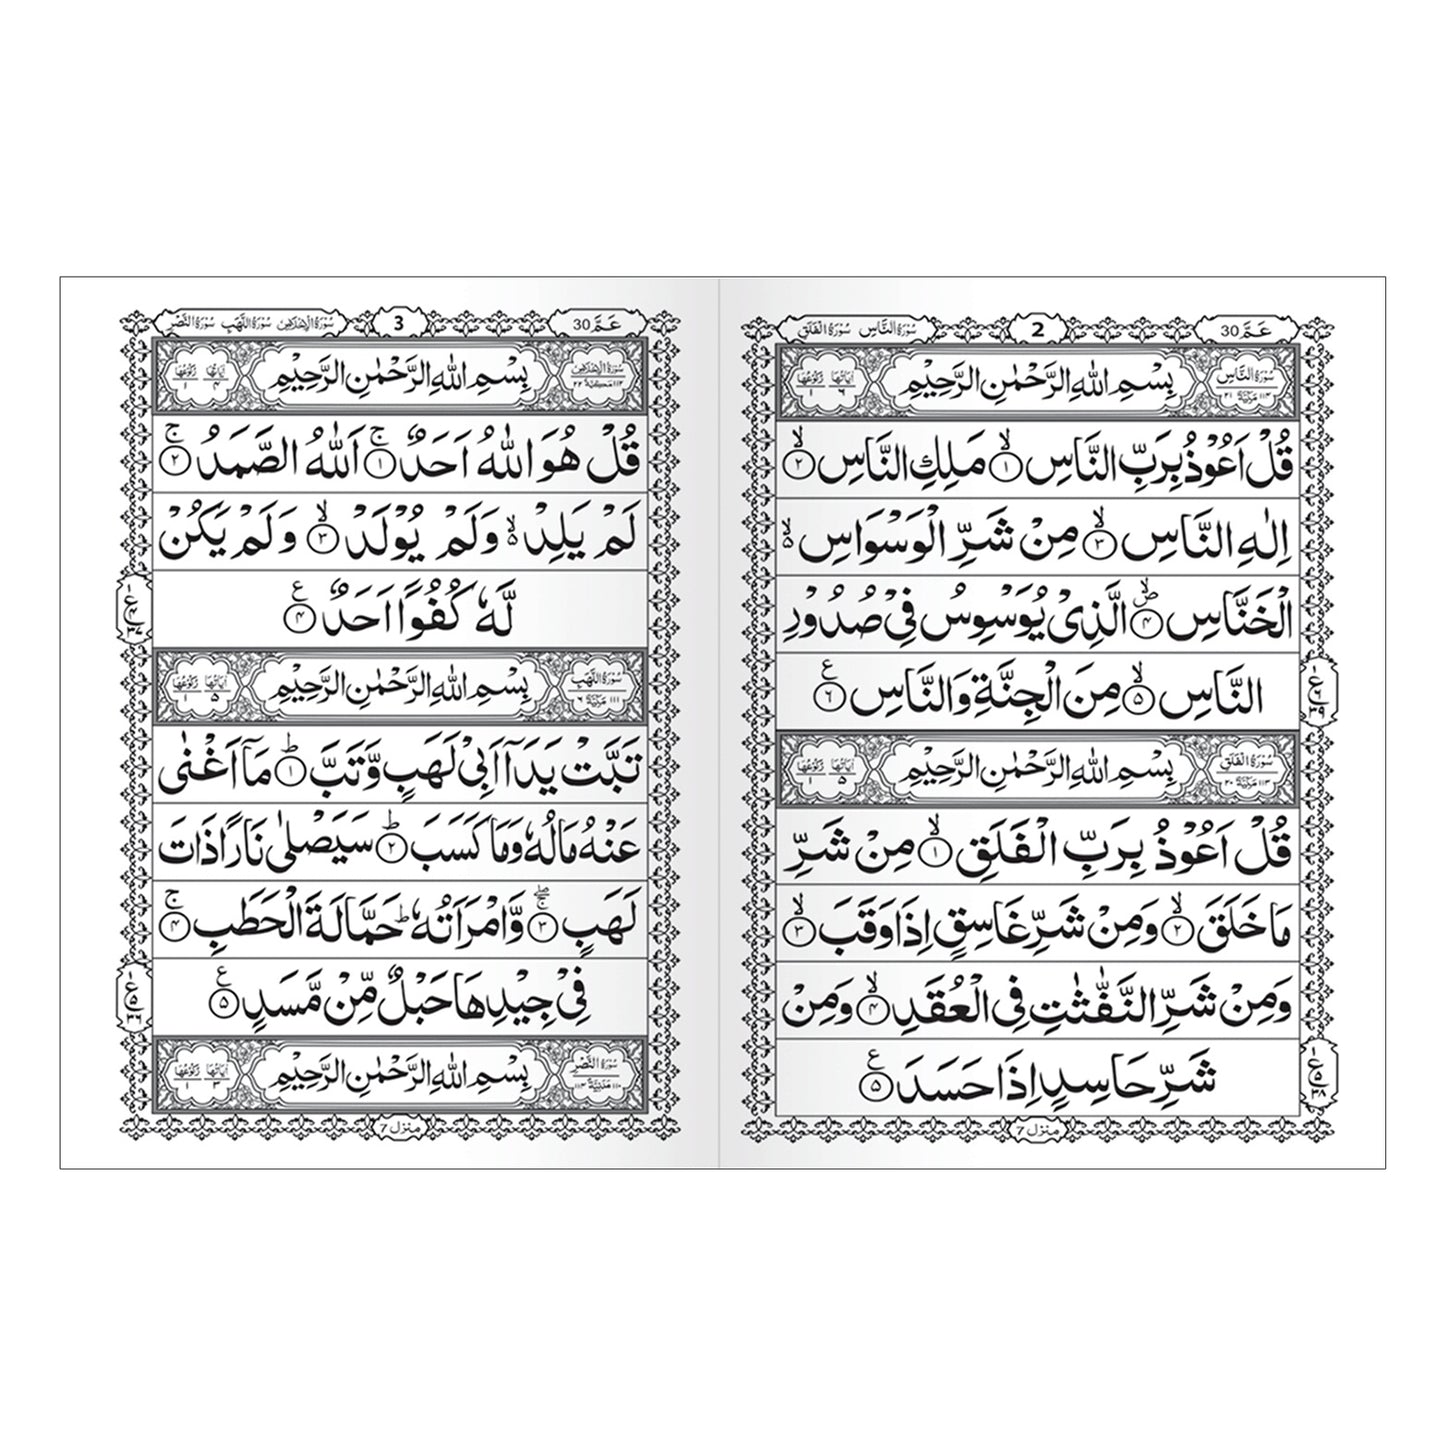 عَمَّ 30
2
سُوْرَةُ النَّاسِ سُوْرَةُ الْفَلَقِ
سُوْرَةُ النَّاسِ
بِسْمِ اللهِ الرَّحْمٰنِ الرَّحِيْمِ
اٰيَاتُهَا ٦ رُكُوْعُهَا ١
قُلْ اَعُوْذُ بِرَبِّ النَّاسِ ۙ﴿۱﴾ مَلِكِ النَّاسِ ۙ﴿۲﴾
اِلٰهِ النَّاسِ ۙ﴿۳﴾ مِنْ شَرِّ الْوَسْوَاسِ ۙ۵
الْخَنَّاسِ ﴿۴﴾ الَّذِيْ يُوَسْوِسُ فِيْ صُدُوْرِ
النَّاسِ ۙ﴿۵﴾ مِنَ الْجِنَّةِ وَالنَّاسِ ﴿۶﴾ ع
سُوْرَةُ الْفَلَقِ
بِسْمِ اللهِ الرَّحْمٰنِ الرَّحِيْمِ
اٰيَاتُهَا ٥ رُكُوْعُهَا ١
قُلْ اَعُوْذُ بِرَبِّ الْفَلَقِ ۙ﴿۱﴾ مِنْ شَرِّ
مَا خَلَقَ ۙ﴿۲﴾ وَمِنْ شَرِّ غَاسِقٍ اِذَا وَقَبَ ۙ﴿۳﴾
وَمِنْ شَرِّ النَّفّٰثٰتِ فِي الْعُقَدِ ۙ﴿۴﴾ وَمِنْ
شَرِّ حَاسِدٍ اِذَا حَسَدَ ﴿۵﴾ ع
منزل 7
عَمَّ 30
3
سُوْرَةُ الْاِخْلَاصِ سُوْرَةُ اللَّهَبِ سُوْرَةُ النَّصْرِ
سُوْرَةُ الْاِخْلَاصِ
بِسْمِ اللهِ الرَّحْمٰنِ الرَّحِيْمِ
اٰيَاتُهَا ٤ رُكُوْعُهَا ١
قُلْ هُوَ اللهُ اَحَدٌ ۚ﴿۱﴾ اَللهُ الصَّمَدُ ۚ﴿۲﴾
لَمْ يَلِدْ ۙ۵ وَلَمْ يُوْلَدْ ۙ﴿۳﴾ وَلَمْ يَكُنْ
لَّهٗ كُفُوًا اَحَدٌ ﴿۴﴾ ع
سُوْرَةُ اللَّهَبِ
بِسْمِ اللهِ الرَّحْمٰنِ الرَّحِيْمِ
اٰيَاتُهَا ٥ رُكُوْعُهَا ١
تَبَّتْ يَدَآ اَبِيْ لَهَبٍ وَّتَبَّ ؕ﴿۱﴾ مَآ اَغْنٰى
عَنْهُ مَالُهٗ وَمَا كَسَبَ ؕ﴿۲﴾ سَيَصْلٰى نَارًا ذَاتَ
لَهَبٍ ﴿۳﴾ وَّامْرَاَتُهٗ ؕ حَمَّالَةَ الْحَطَبِ ۚ﴿۴﴾
فِيْ جِيْدِهَا حَبْلٌ مِّنْ مَّسَدٍ ﴿۵﴾ ع
سُوْرَةُ النَّصْرِ
بِسْمِ اللهِ الرَّحْمٰنِ الرَّحِيْمِ
اٰيَاتُهَا ٣ رُكُوْعُهَا ١
منزل 7